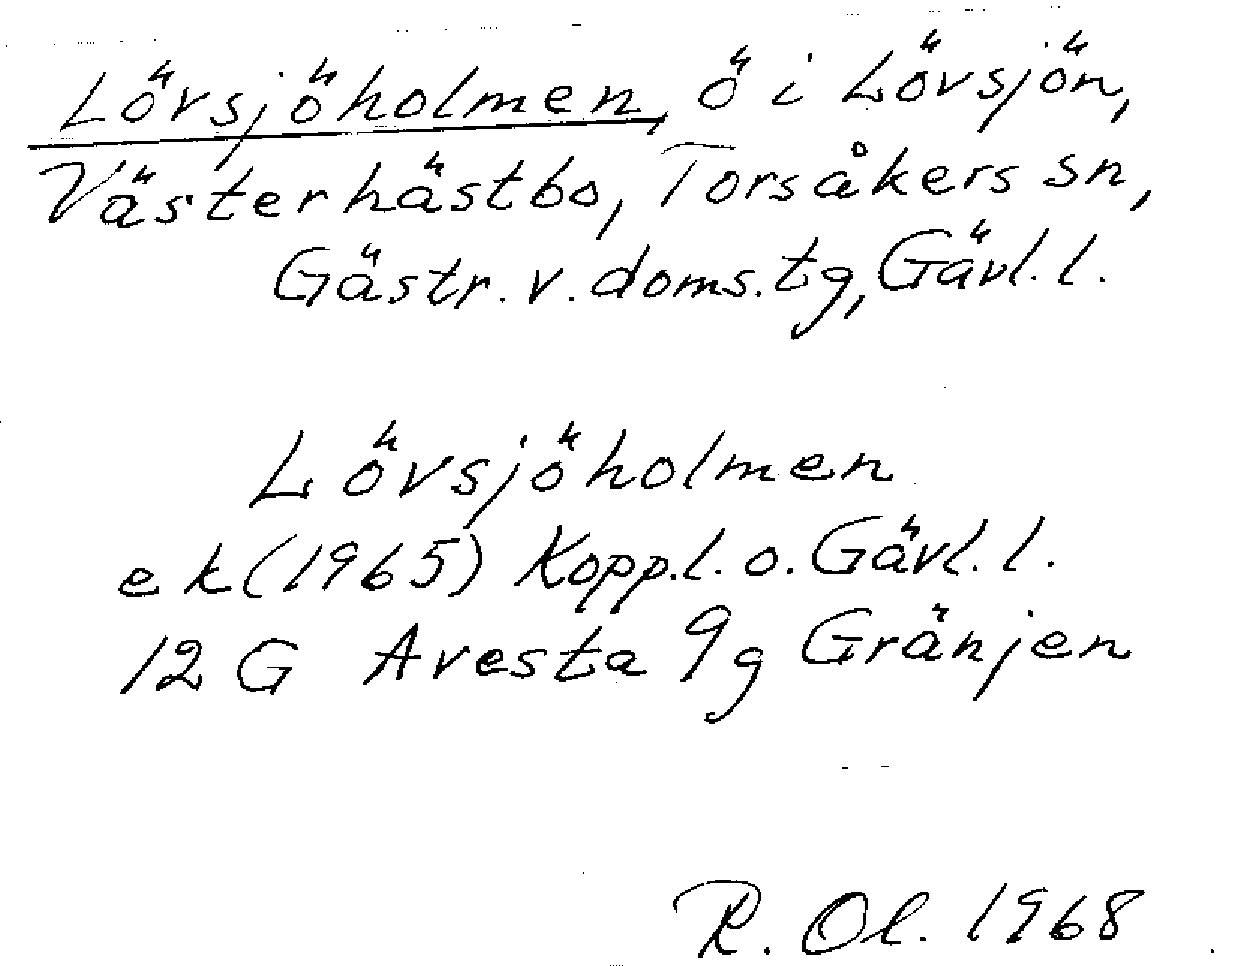 Lövsjöholmen, ö i Lövsjön,
Västerhästbo, Torsåkers sn,
Gästr. v. doms. tg, Gävl. l.
Lövsjöholmen
ek (1965) Kopp.l. o. Gävl. l.
12 G Avesta 9g Gränjen
R. Ol. 1968